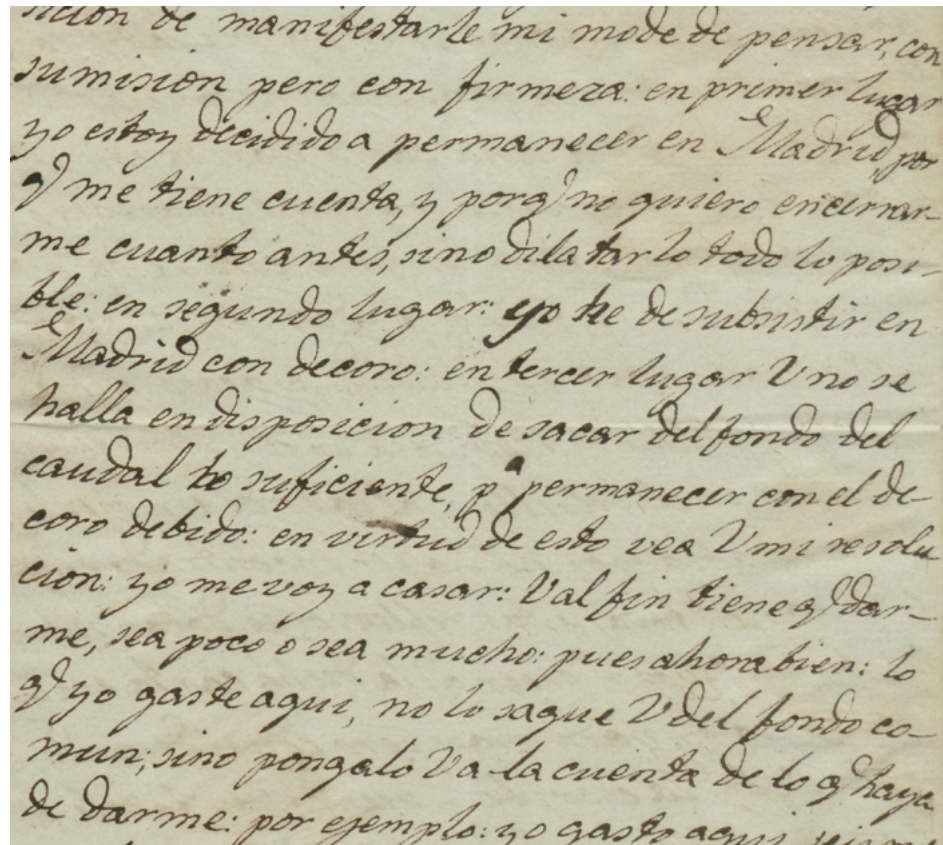 sicion de manifestarle mi modo de pensar, con
sumision pero con firmeza: en primer lugar
yo estoy decidido a permanecer en Madrid, por
q.e me tiene cuenta, y porq.e no quiero encerrar-
me cuanto antes, sino dilatarlo todo lo posi-
ble: en segundo lugar: yo he de subsistir en
Madrid con decoro: en tercer lugar V no se
halla en disposicion de sacar del fondo del
caudal lo suficiente, p.a permanecer con el de-
coro debido: en virtud de esto vea V mi resolu
cion: yo me voy a casar: V al fin tiene q.e dar-
me, sea poco o sea mucho: pues ahora bien: lo
q.e yo gaste aqui, no lo saque V del fondo co-
mun; sino pongalo V a la cuenta de lo q.e haya
de darme: por ejemplo: yo gasto aqui